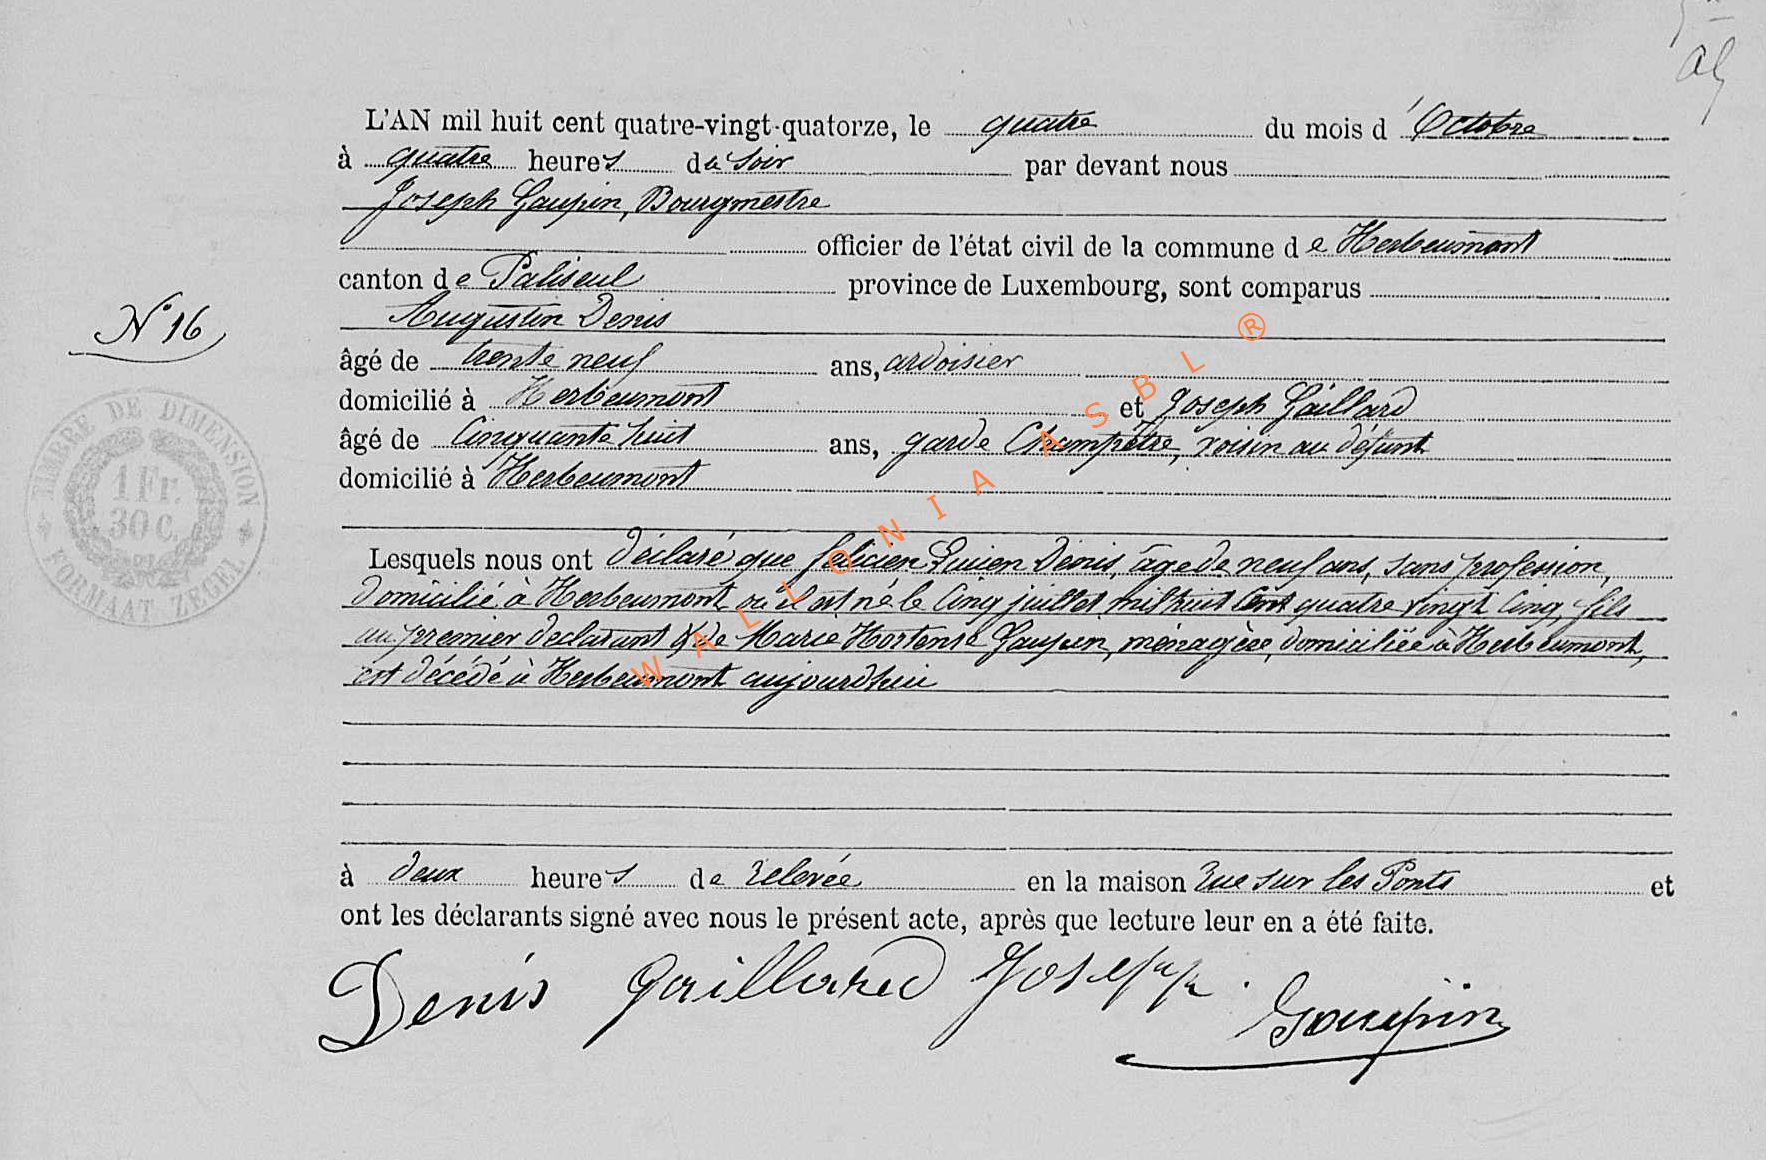 L'AN mil huit cent quatre-vingt-quatorze, le quatre du mois d'Octobre
à quatre heures du soir par devant nous
Joseph Gaupin, Bourgmestre
officier de l'état civil de la commune de Herbeumont
canton de Paliseul province de Luxembourg, sont comparus
Augustin Denis
N° 16
âgé de trente neuf ans, ardoisier
domicilié à Herbeumont et Joseph Gaillard
âgé de Cinquante huit ans, garde Champêtre, voisin au défunt
domicilié à Herbeumont
Lesquels nous ont déclaré que Félicien Lucien Denis, âgé de neuf ans, sans profession,
domicilié à Herbeumont où il est né le Cinq juillet mil huit Cent quatre vingt Cinq, fils
au premier déclarant & de Marie Hortense Gaupin, ménagère, domiciliée à Herbeumont,
est décédé à Herbeumont aujourd'hui
à deux heures de relevée en la maison rue sur les Ponts et
ont les déclarants signé avec nous le présent acte, après que lecture leur en a été faite.
Denis Gaillard Joseph. Gaupin
TIMBRE DE DIMENSION
1 Fr.
30 C.
FORMAAT ZEGEL
WALLONIA ASBL ®